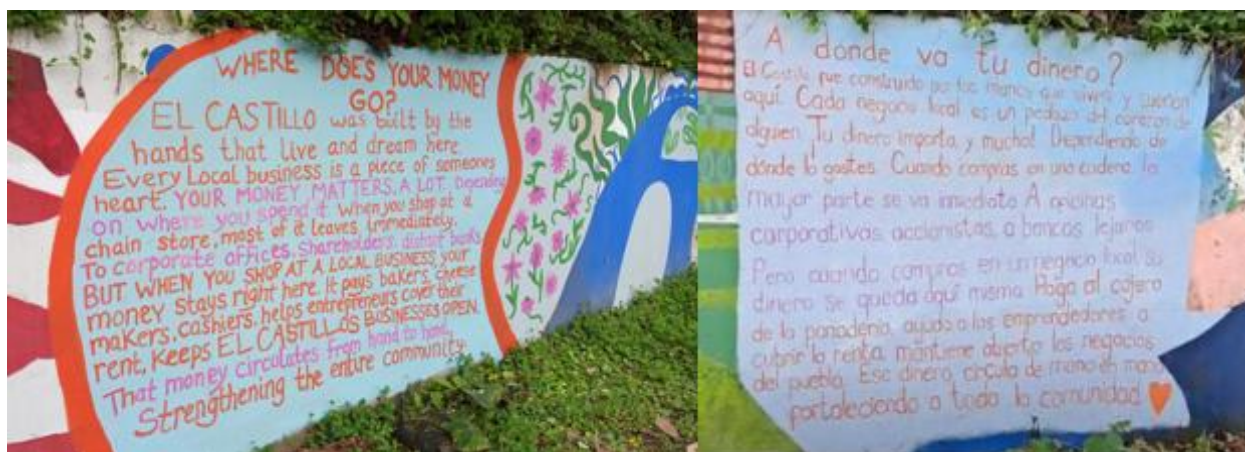 WHERE DOES YOUR MONEY
GO?
EL CASTILLO was built by the
hands that live and dream here
Every Local business is a piece of someones
heart. YOUR MONEY MATTERS, A LOT. Depending
on where you spend it. When you shop at a
chain store, most of it leaves immediately.
To corporate offices, shareholders, distant banks
BUT WHEN YOU SHOP AT A LOCAL BUSINESS, your
money stays right here. It pays bakers, cheese
makers, cashiers, helps entrepreneurs cover their
rent, keeps EL CASTILLOS BUSINESSES OPEN.
That money circulates from hand to hand,
Strengthening the entire community.
A donde va tu dinero?
El Castillo fue construido por las manos que viven y sueñan
aquí. Cada negocio local es un pedazo del corazon de
alguien. Tu dinero importa, y mucho! Dependiendo de
dónde lo gastes. Cuando compras en una cadena, la
mayor parte se va inmediato A oficinas
corporativas, accionistas, a bancos lejanos
Pero cuando compras en un negocio local, su
dinero se queda aquí mismo. Paga al cajero
de la panadería, ayuda a los emprendedores a
cubrir la renta, mantiene abierto los negocios
del pueblo. Ese dinero, circula de mano en mano
fortaleciendo a toda la comunidad